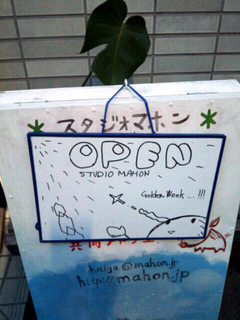 スタジオマホン
OPEN
STUDIO MAHON
Golden Week...!!!
kaiga@mahon.jp
http://mahon.jp